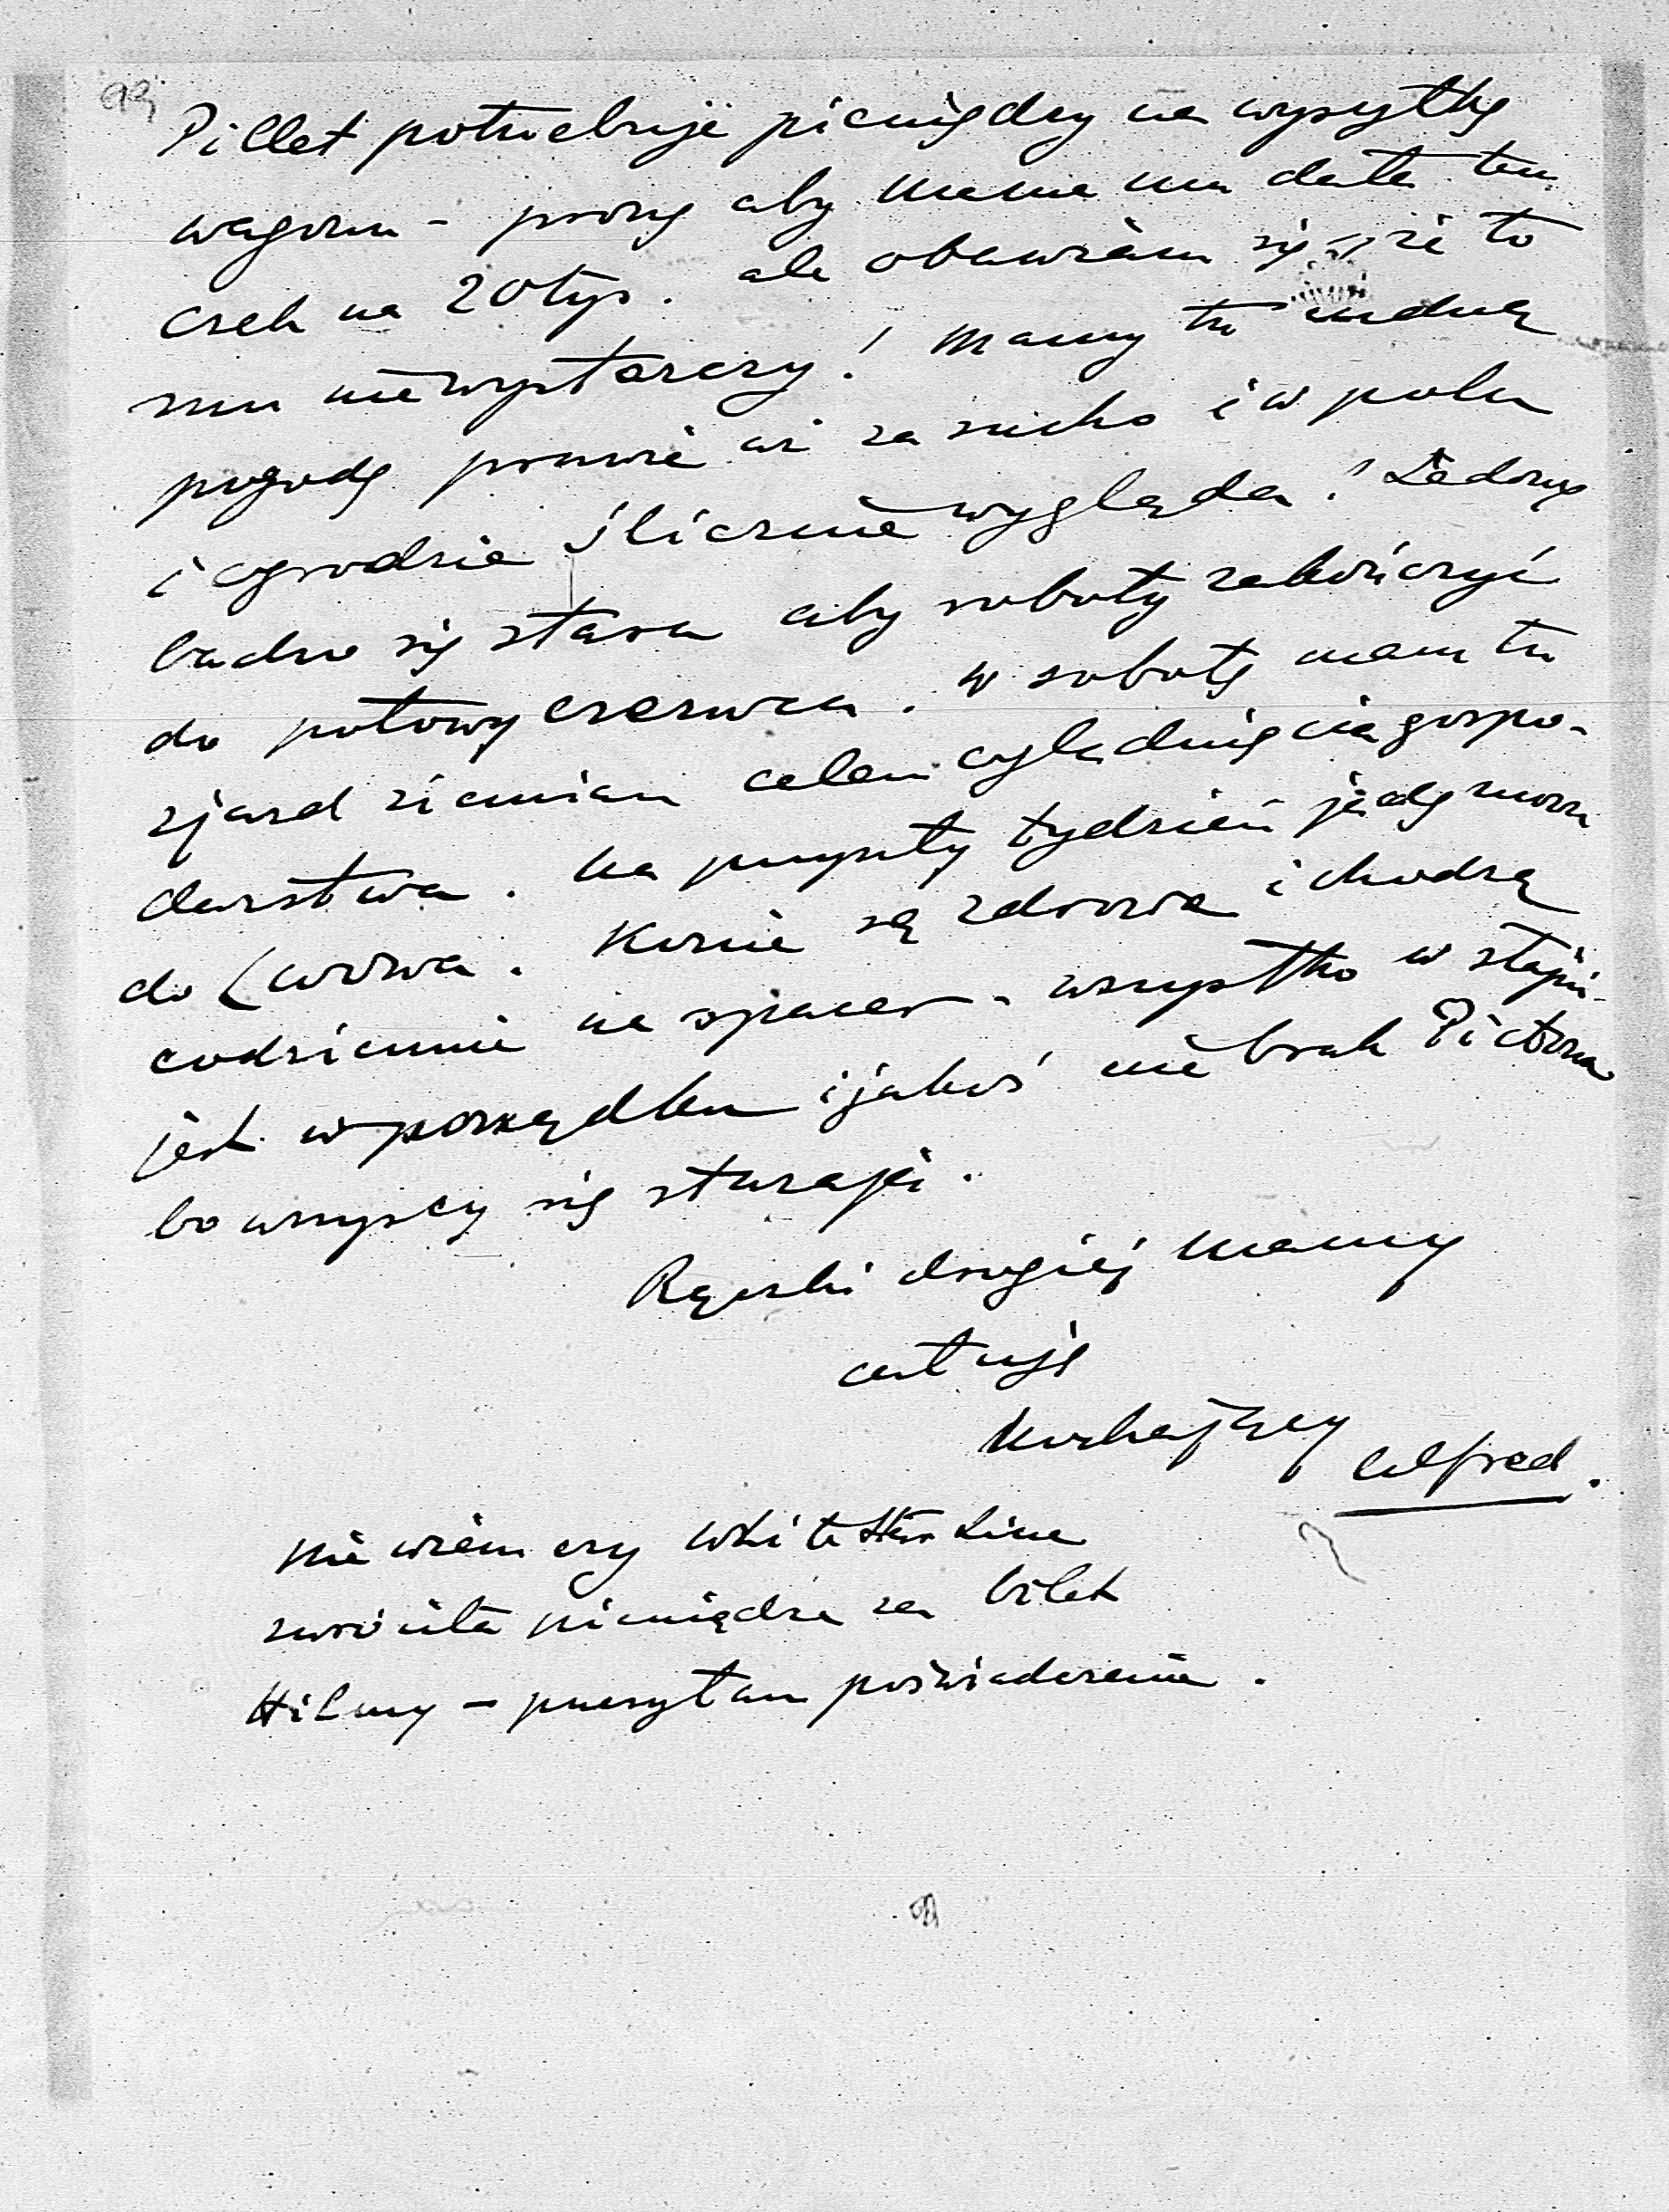 99
Pillet potrzebuje pieniędzy na wysyłkę
wagonu - proszę aby Mama mu dała ten
czek na 20 tys. ale obawiam się, że to
mu nie wystarczy! Mamy tu cudną
pogodę prawie aż za sucho i w polu
i ogrodzie ślicznie wygląda!
bardzo się stara aby roboty zakończyć
do połowy czerwca. W sobotę mam tu
zjazd ziemian celem oglądnięcia gospo-
darstwa. Na przyszły tydzień jadę znowu
do Lwowa. Konie są zdrowe i chodzą
codziennie na spacer - wszystko w stajni
jest w porządku i jakoś nie brak
bo wszyscy się starają.
Rączki drogiej Mamy
całuję
kochający Alfred.
Nie wiem czy White Star Line
zwróciła pieniądze za bilet
Hilmy - przesyłam poświadczenie.